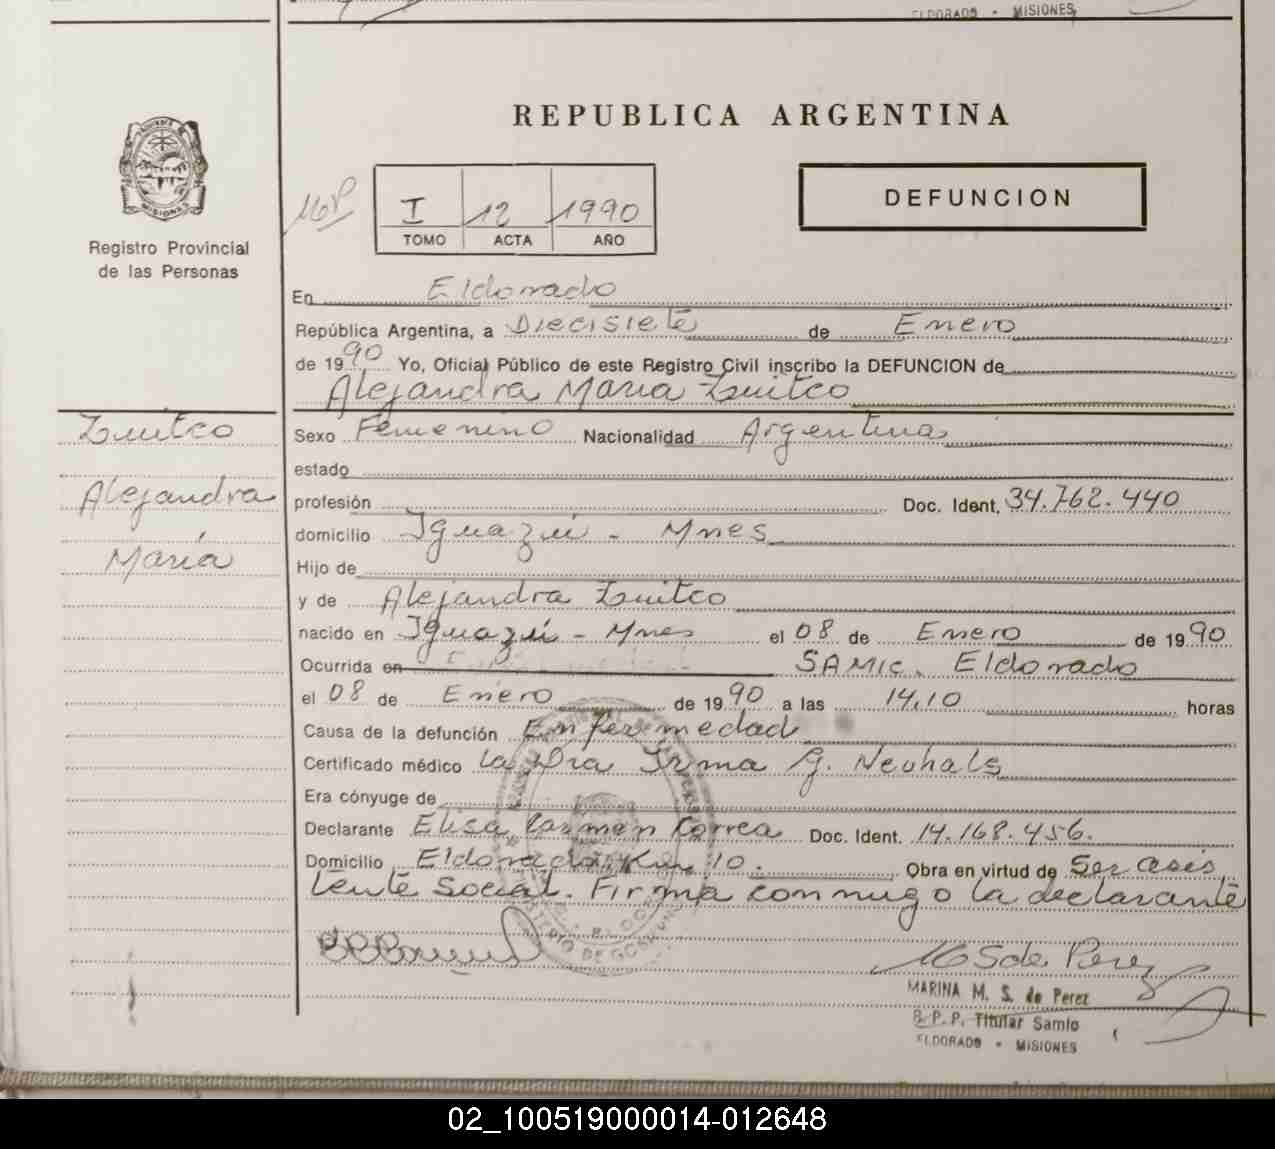 ELDORADO - MISIONES
REPUBLICA ARGENTINA
MISIONES
Registro Provincial
de las Personas
I 12 1990
TOMO ACTA AÑO
DEFUNCION
En Eldorado
República Argentina, a Diecisiete de Enero
de 1990 Yo, Oficial Público de este Registro Civil inscribo la DEFUNCION de
Alejandra María Zuitco
Zuitco
Alejandra
María
Sexo Femenino Nacionalidad Argentina
estado
profesión Doc. Ident. 34.762.440
domicilio Iguazú - Mnes
Hijo de
y de Alejandra Zuitco
nacido en Iguazú - Mnes el 08 de Enero de 1990
Ocurrida en SAMIC. Eldorado
el 08 de Enero de 1990 a las 14,10 horas
Causa de la defunción Enfermedad
Certificado médico La Dra Irma G. Neuhals
Era cónyuge de
Declarante Elisa Carmen Correa Doc. Ident. 14.168.456.
Domicilio Eldorado, Km, 10. Obra en virtud de Ser asis,
tente Social. Firma conmigo la declarante
MS de Perez
MARINA M. S. de Perez
R.P.P. Titular Samic
ELDORADO - MISIONES
02_100519000014-012648